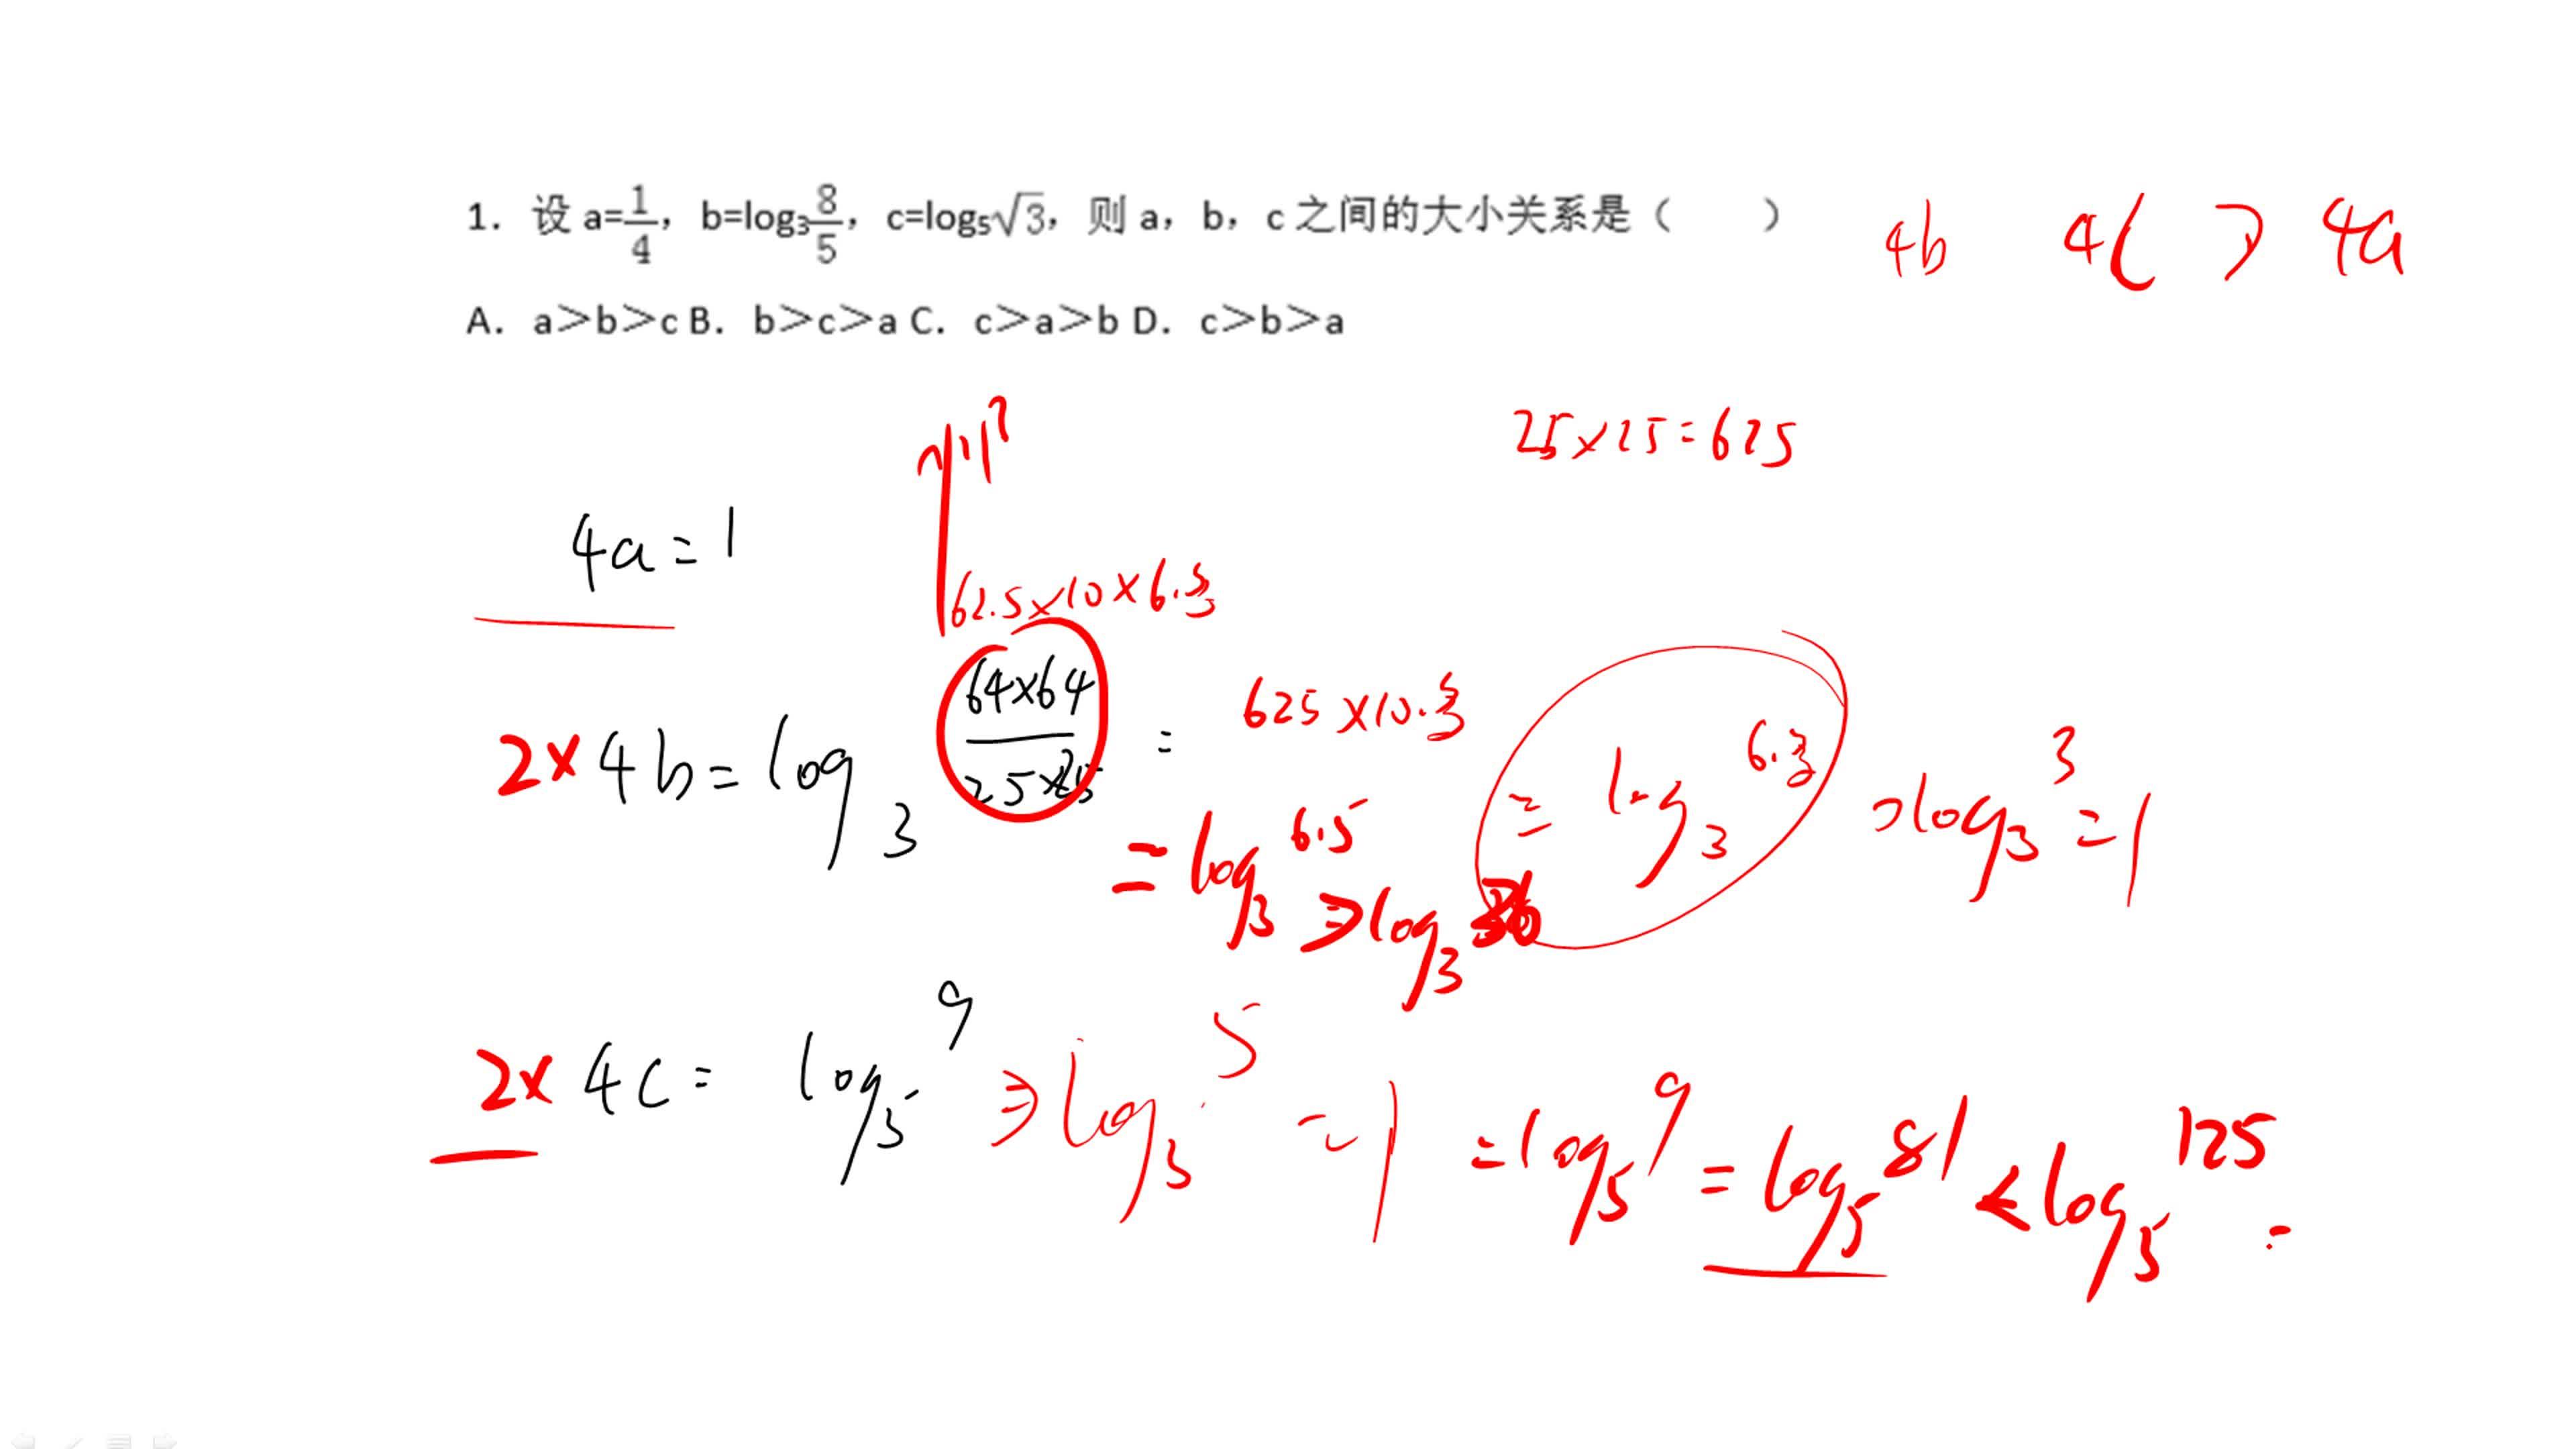 1. 设 a=1/4，b=log₃8/5，c=log₅√3，则 a，b，c 之间的大小关系是（ ）
4b 4c > 4a
A．a＞b＞c B．b＞c＞a C．c＞a＞b D．c＞b＞a
25×25=625
4a=1
62.5×10×6.3
625×10.3
2×4b=log₃ (64×64)/(25×25) =
=log₃6.5 ≥log₃
=log₃6.3 >log₃3=1
2×4c= log₅9 ≥log₅5 =1 =log₅9 =log₅81 <log₅125 =